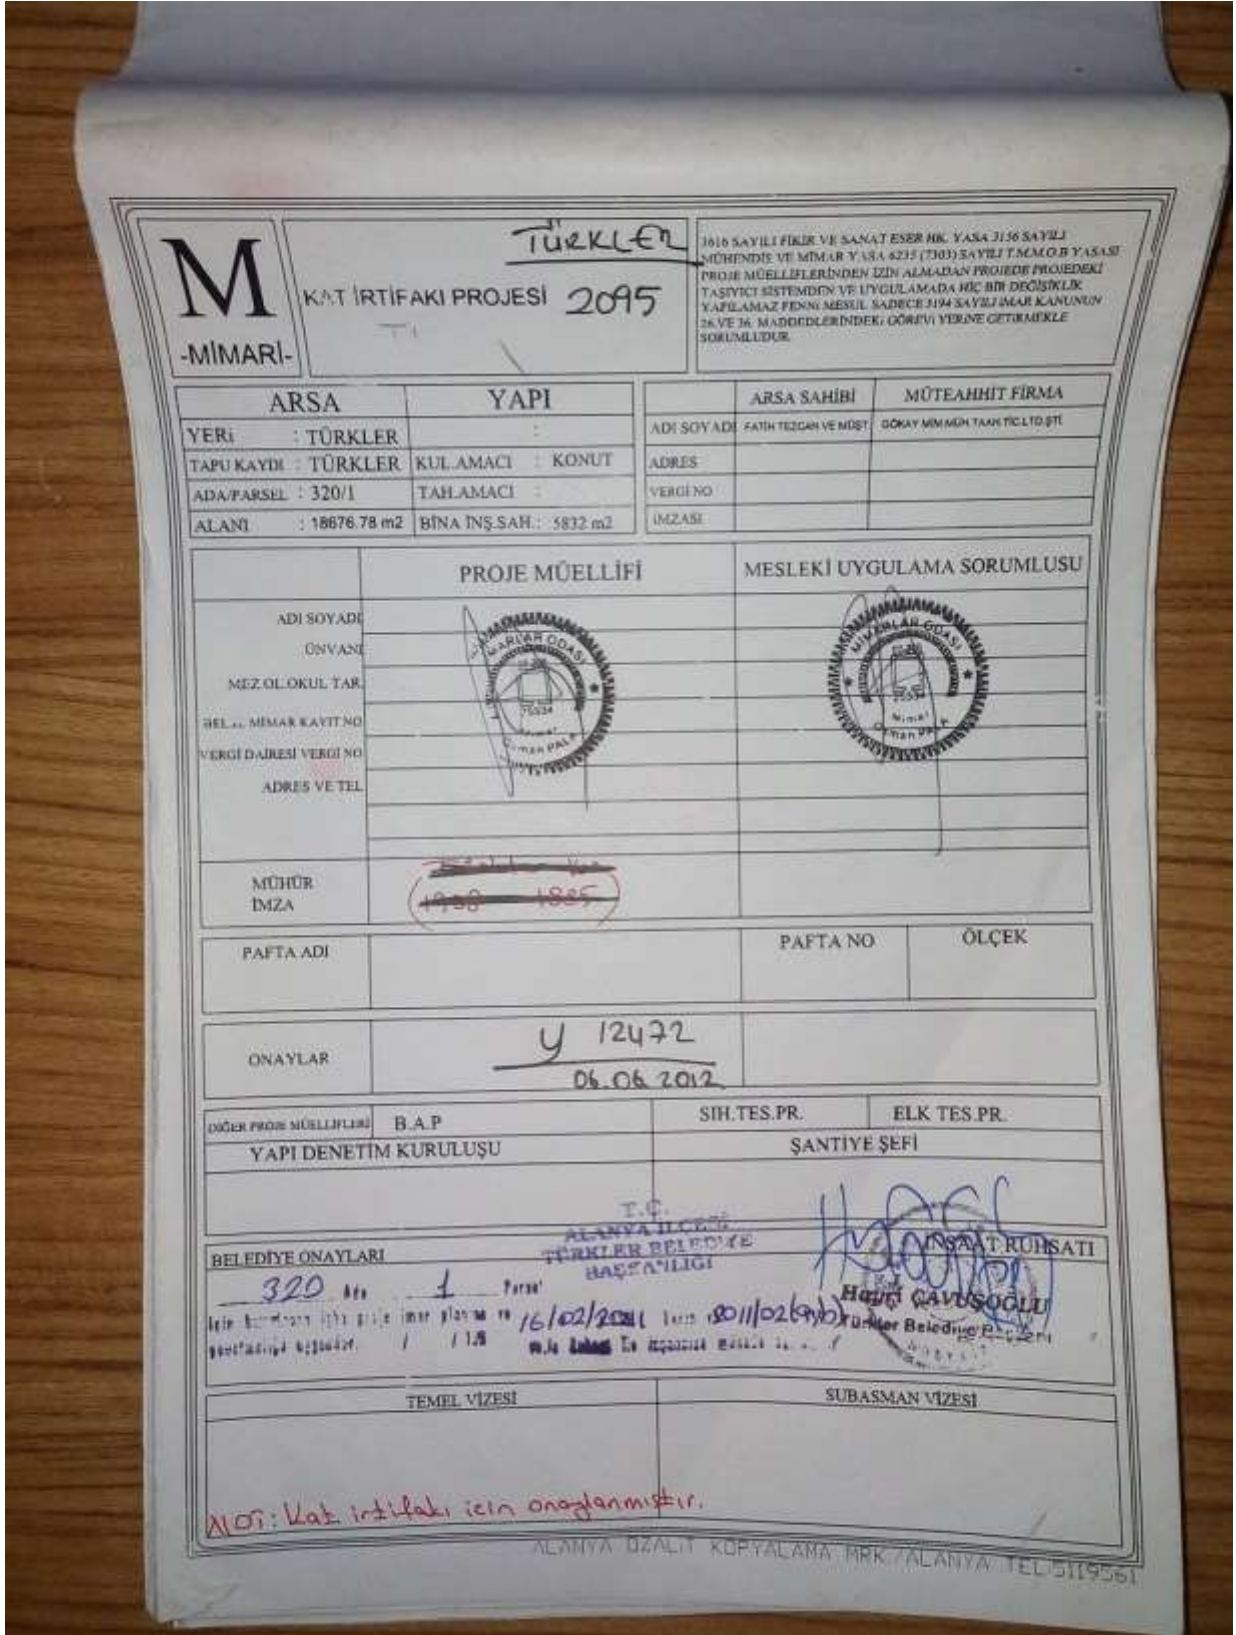 M
-MİMARİ-
KAT İRTİFAKI PROJESİ
TÜRKLER
2095
3616 SAYILI FİKİR VE SANAT ESER HK. YASA 3156 SAYILI
MÜHENDİS VE MİMAR YASA 6235 (7303) SAYILI T.M.M.O.B YASASI
PROJE MÜELLİFLERİNDEN İZİN ALMADAN PROJEDE PROJEDEKİ
TAŞIYICI SİSTEMDEN VE UYGULAMADA HİÇ BİR DEĞİŞİKLİK
YAPILAMAZ FENNi MESUL SADECE 3194 SAYILI İMAR KANUNUN
26.VE 36. MADDEDLERİNDEKi GÖREVi YERiNE GETiRMEKLE
SORUMLUDUR.
ARSA YAPI
YERi : TÜRKLER :
TAPU KAYDI : TÜRKLER KUL.AMACI : KONUT
ADA/PARSEL : 320/1 TAH.AMACI :
ALANI : 18676.78 m2 BİNA İNŞ.SAH.: 5832 m2
ARSA SAHİBİ MÜTEAHHİT FİRMA
ADI SOYADI FATİH TEZCAN VE MÜŞT. GÖKAY MİM MÜH TAAH TİC.LTD.ŞTİ.
ADRES
VERGİ NO
İMZASI
PROJE MÜELLİFİ MESLEKİ UYGULAMA SORUMLUSU
ADI SOYADI
ÜNVANI
MEZ.OL.OKUL TAR.
MİMAR KAYIT NO
VERGİ DAİRESİ VERGİ NO
ADRES VE TEL
MİMARLAR ODASI
Mimar
Osman PALA
MİMARLAR ODASI
Mimar
Osman PALA
MÜHÜR
İMZA
1938 1885
PAFTA ADI PAFTA NO ÖLÇEK
ONAYLAR
y 12472
06.06.2012
DİĞER PROJE MÜELLİFLERİ B.A.P SIH.TES.PR. ELK TES.PR.
YAPI DENETİM KURULUŞU ŞANTİYE ŞEFİ
T.C.
ALANYA İLÇESİ
TÜRKLER BELEDİYE
BAŞKANLIĞI
BELEDİYE ONAYLARI İNŞAAT RUHSATI
320 Ada 1 Parsel
16/02/2011
Hayri ÇAVUŞOĞLU
Türkler Belediye Başkanı
TEMEL VİZESİ SUBASMAN VİZESİ
NOT: Kat irtifakı için onaylanmıştır.
ALANYA OZALİT KOPYALAMA MRK./ALANYA TEL:5119561